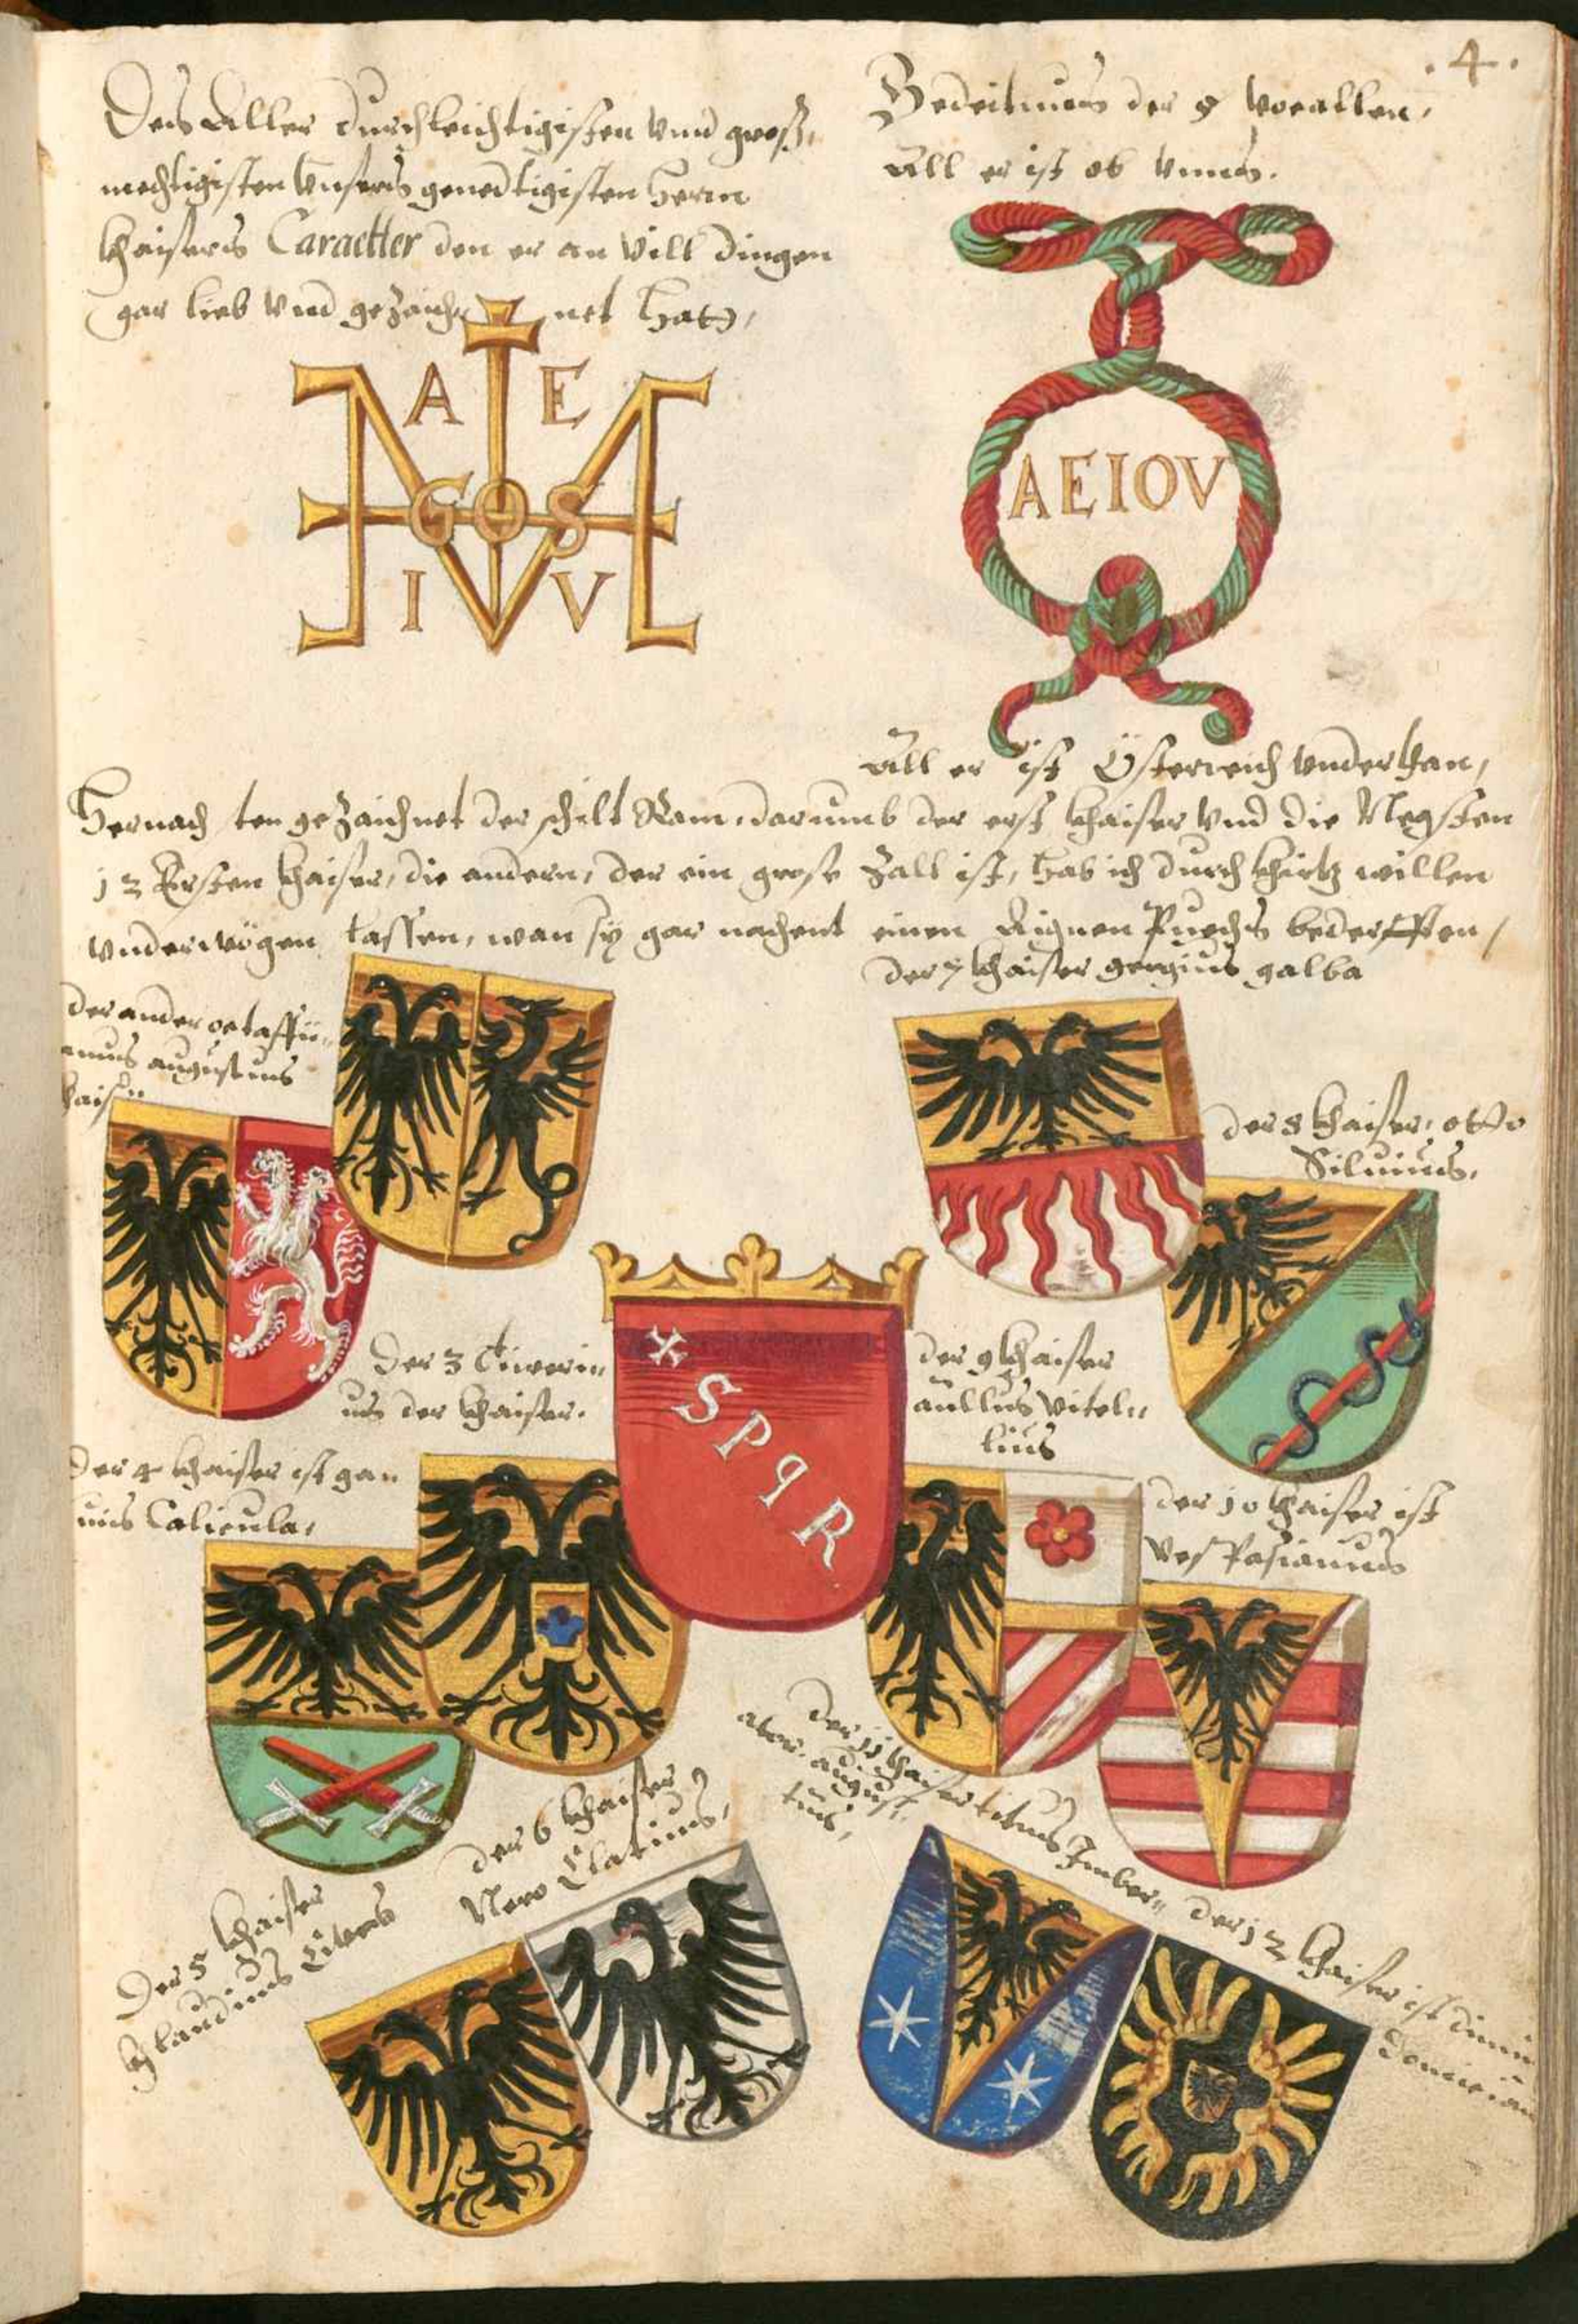 .4.
Des Aller durchleichtigisten vnnd groß,
mechtigisten vnsers genedtigisten herrn
khaisers Caractter den er an vill dingen
gar lieb vnd gezaich net hatt,
A E
G O S
I V
Bedeitnus der 5 voeallen,
All er ist ob vnns.
AEIOV
All er ist Österreich vnderthan,
Hernach ten gezaichnet der schilt Rom, darumb der erst khaiser vnd die Negsten
12 Ersten khaiser, die andern, der ein grose zall ist, hab ich durch khirtz willen
vnderwögen lassen, wan sy gar nachent einen Aignen Puechs bederfften,
der 7 khaiser sergius galba
der ander octaffii„
anus augustuus
kais„
der 8 khaiser, otto
Siluiuus,
der 3 Tiwerin„
us der khaiser.
* S P q R
der 9 khaiser
aullus vitel„
lius
der 4 khaiser ist gan
uis Calicula,
der 10 khaiser ist
vesPasianus
der 11 khaiser titus Imber„
ator, august„
tus,
der 6 khaiser
Nero Clatius,
Der 5 khaiser
khlaudius
der 12 khaiser ist